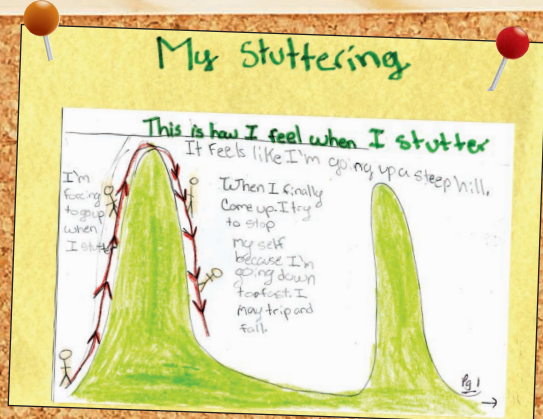 My Stuttering
This is how I feel when I stutter
It feels like I'm going up a steep hill.
I'm
forcing
to go up
when
I stutter
When I finally
come up. I try
to stop
my self
because I'm
going down
too fast. I
may trip and
fall.
Pg 1